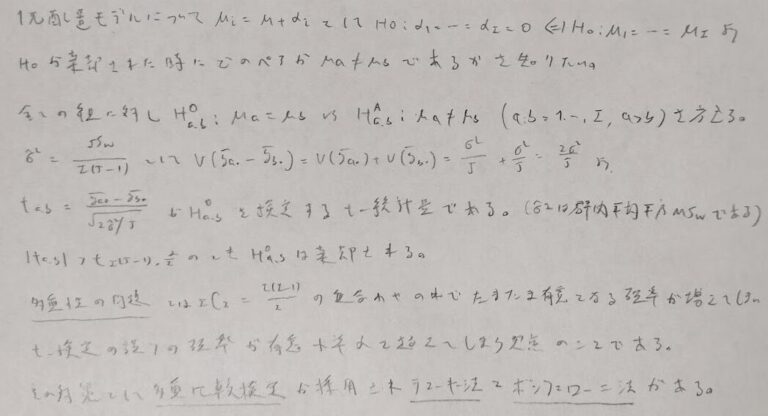 1元配置モデルについて μi = μ+αi として H0: α1=…=αI=0 ⇔ H0: μ1=…=μI より
H0が棄却された時にどのペアが μa≠μb であるかを知りたい。
全ての組に対し H⁰a,b: μa=μb vs Hᴬa,b: μa≠μb (a,b=1,…,I, a>b) を考える。
σ̂² = SSw / I(J-1) として V(ȳa. - ȳb.) = V(ȳa.)+V(ȳb.) = σ²/J + σ²/J = 2σ²/J より
ta,b = (ȳa. - ȳb.) / √(2σ̂²/J) が H⁰a,b を検定する t-統計量である。(σ̂²は群内平均平方 MSwである)
|ta,b| > t I(J-1), α/2 のとき H⁰a,b は棄却される。
多重性の問題 とは IC2 = I(I-1)/2 の組合わせの中でたまたま有意となる確率が増えてしまい
t-検定の第1の確率が有意水準αを超えてしまう欠点のことである。
その対策として多重比較検定が採用されテューキー法とボンフェローニ法がある。